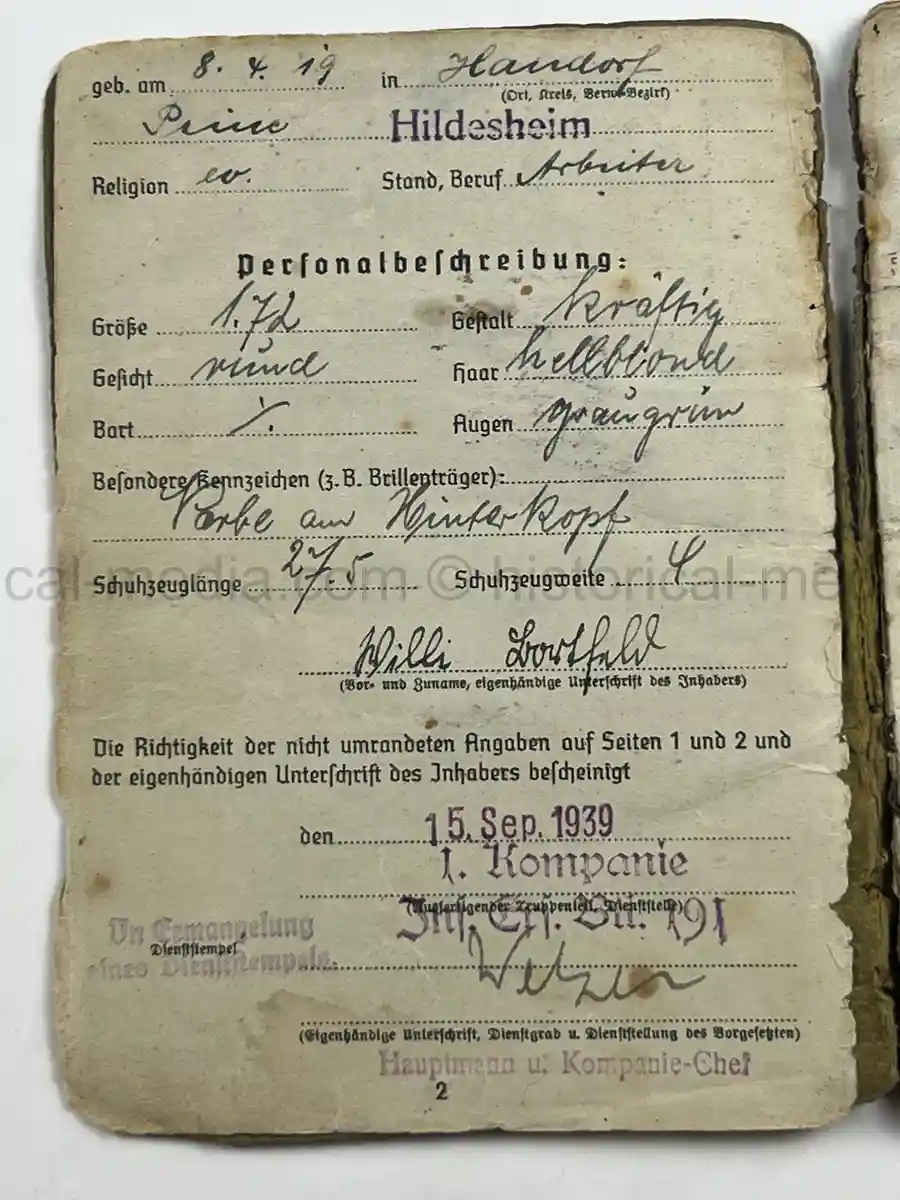 geb. am 8. 4. 19 in Handorf
(Ort, Kreis, Verw.-Bezirk)
Peine Hildesheim
Religion ev. Stand, Beruf Arbeiter
Personalbeschreibung:
Größe 1.72 Gestalt kräftig
Gesicht rund Haar hellblond
Bart ./. Augen graugrün
Besondere Kennzeichen (z.B. Brillenträger):
Narbe am Hinterkopf
cal-media.com © historical-me
Schuhzeuglänge 27.5 Schuhzeugweite 4
Willi Bortfeld
(Vor- und Zuname, eigenhändige Unterschrift des Inhabers)
Die Richtigkeit der nicht umrandeten Angaben auf Seiten 1 und 2 und
der eigenhändigen Unterschrift des Inhabers bescheinigt
den 15. Sep. 1939
1. Kompanie
(Ausfertigender Truppenteil, Dienststelle)
Inf. Ers. Btl. 191
In Ermangelung
Dienststempel
eines Dienststempels.
(Eigenhändige Unterschrift, Dienstgrad u. Dienststellung des Vorgesetzten)
Hauptmann u. Kompanie-Chef
2